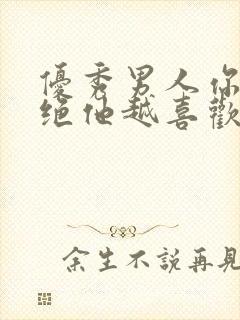 優秀男人你
絕他越喜歡
余生不說再見